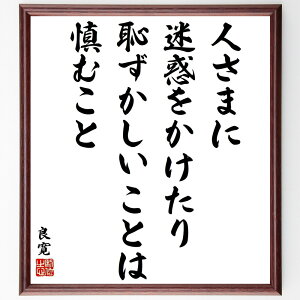 人さまに
迷惑をかけたり
恥ずかしいことは
慎むこと
良寛